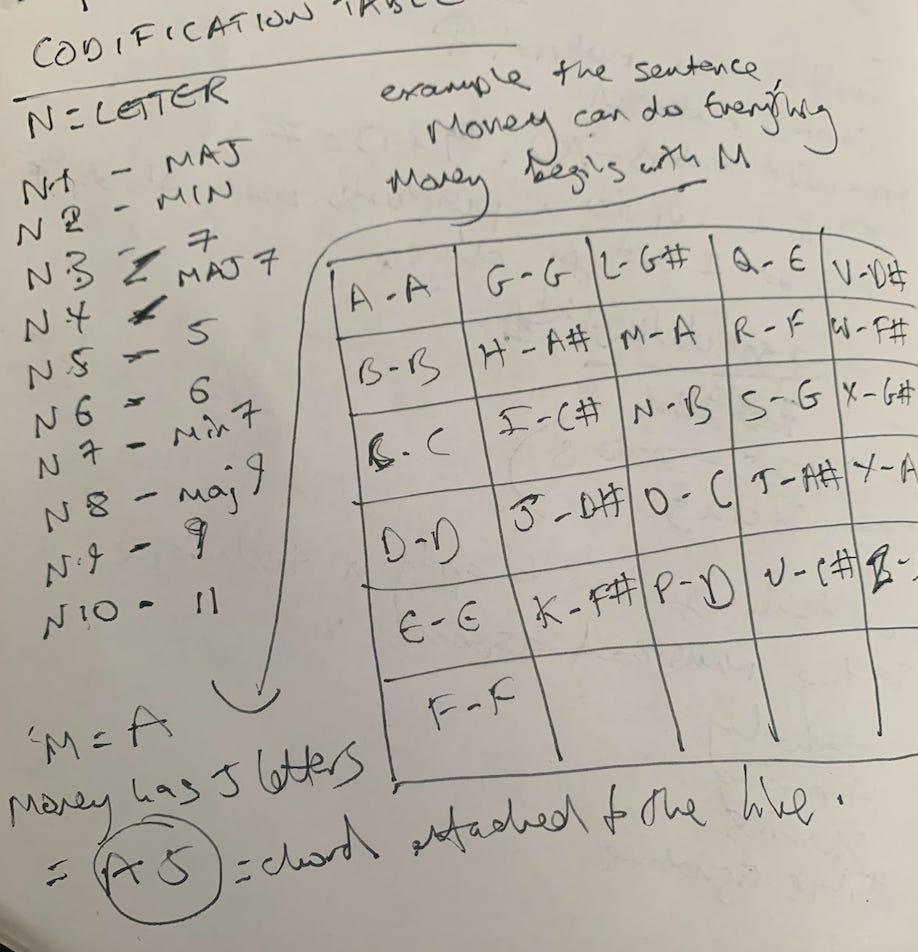 CODIFICATION TABLE
N=LETTER
N1 - MAJ
N2 - MIN
N3 - 7
N4 - MAJ7
N5 - 5
N6 - 6
N7 - Min7
N8 - maj9
N9 - 9
N10 - 11
example the sentence,
Money can do Everything
Money begins with M
A-A G-G L-G# Q-E V-D#
B-B H-A# M-A R-F W-F#
C-C I-C# N-B S-G X-G#
D-D J-D# O-C T-A# Y-A
E-E K-F# P-D U-C# Z-
F-F
M=A
Money has 5 letters
= A5 = chord attached to the line.